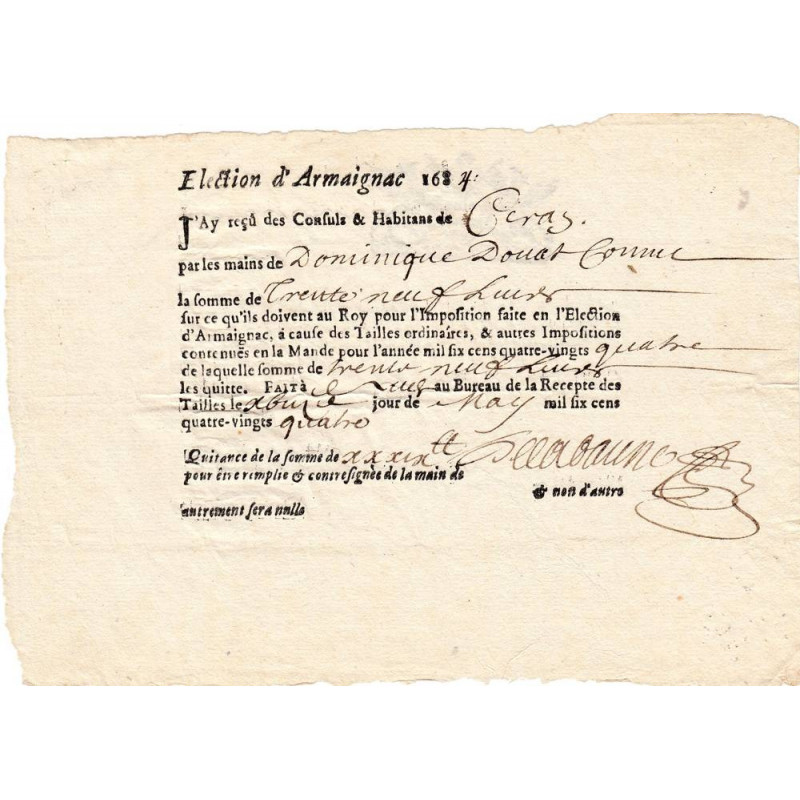 Election d'Armaignac 1684:
J'Ay reçû des Consuls & Habitans de Ceras.
par les mains de Dominique Douat
la somme de Trente neuf Liures
sur ce qu'ils doivent au Roy pour l'Imposition faite en l'Election
d'Armaignac, à cause des Tailles ordinaires, & autres Impositions
contenuës en la Mande pour l'année mil six cens quatre-vingts quatre
de laquelle somme de trente neuf Liures
les quitte. FAIT à au Bureau de la Recepte des
Tailles le jour de May mil six cens
quatre-vingts quatre
Quitance de la somme de xxxix tt Delabaune
pour être remplie & contresignée de la main de
& non d'autre
autrement sera nulle